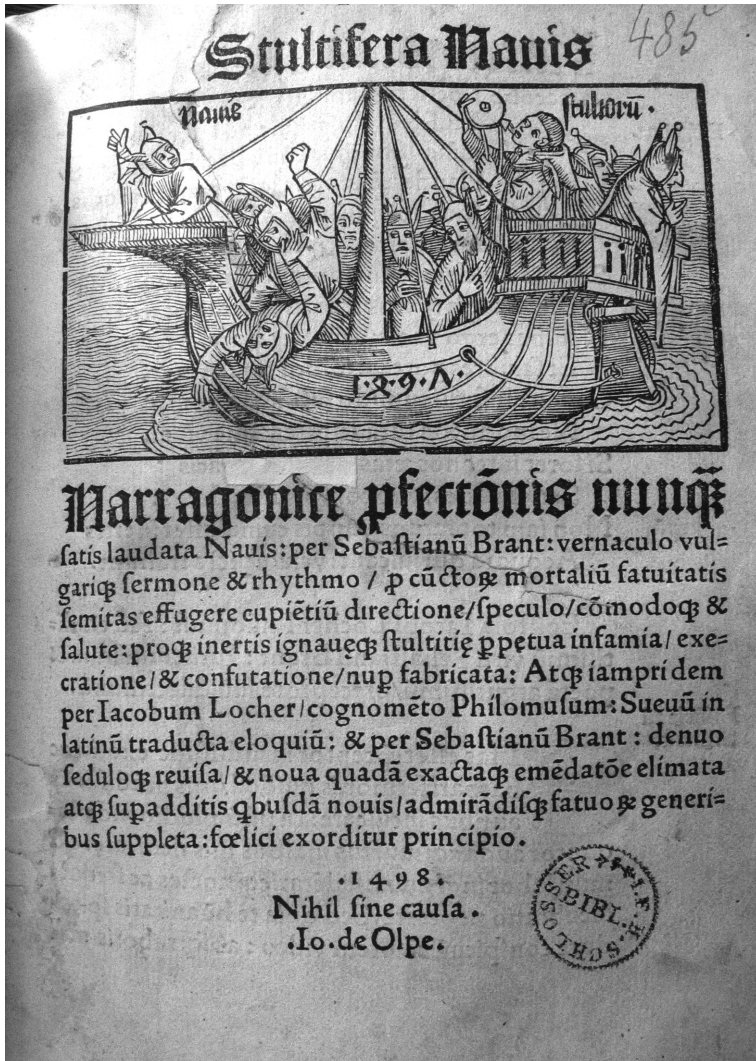 485
Stultifera Nauis
Nauis
stultorū.
1.4.9.7.
Narragonice ꝓfectōnis nunqᷓꝫ
ſatis laudata Nauis: per Sebaſtianū Brant: vernaculo vul=
gariqꝫ ſermone & rhythmo / ꝓ cūctoꝝ mortaliū fatuitatis
ſemitas effugere cupiētiū directione/ſpeculo/cōmodoqꝫ &
ſalute: proqꝫ inertis ignauęqꝫ ſtultitię ꝑpetua infamia/exe=
cratione/& confutatione/nuꝑ fabricata: Atqꝫ iampridem
per Iacobum Locher/cognomēto Philomuſum: Sueuū in
latinū traducta eloquiū: & per Sebaſtianū Brant : denuo
ſeduloqꝫ reuiſa/& noua quadā exactaqꝫ emēdatōe elimata
atqꝫ ſuꝑadditis qbuſdā nouis/admirādiſqꝫ fatuoꝝ generi=
bus ſuppleta: fœlici exorditur principio.
.1498.
Nihil ſine cauſa.
.Io.de Olpe.
I.F.H.SCHLOSSER
BIBL.